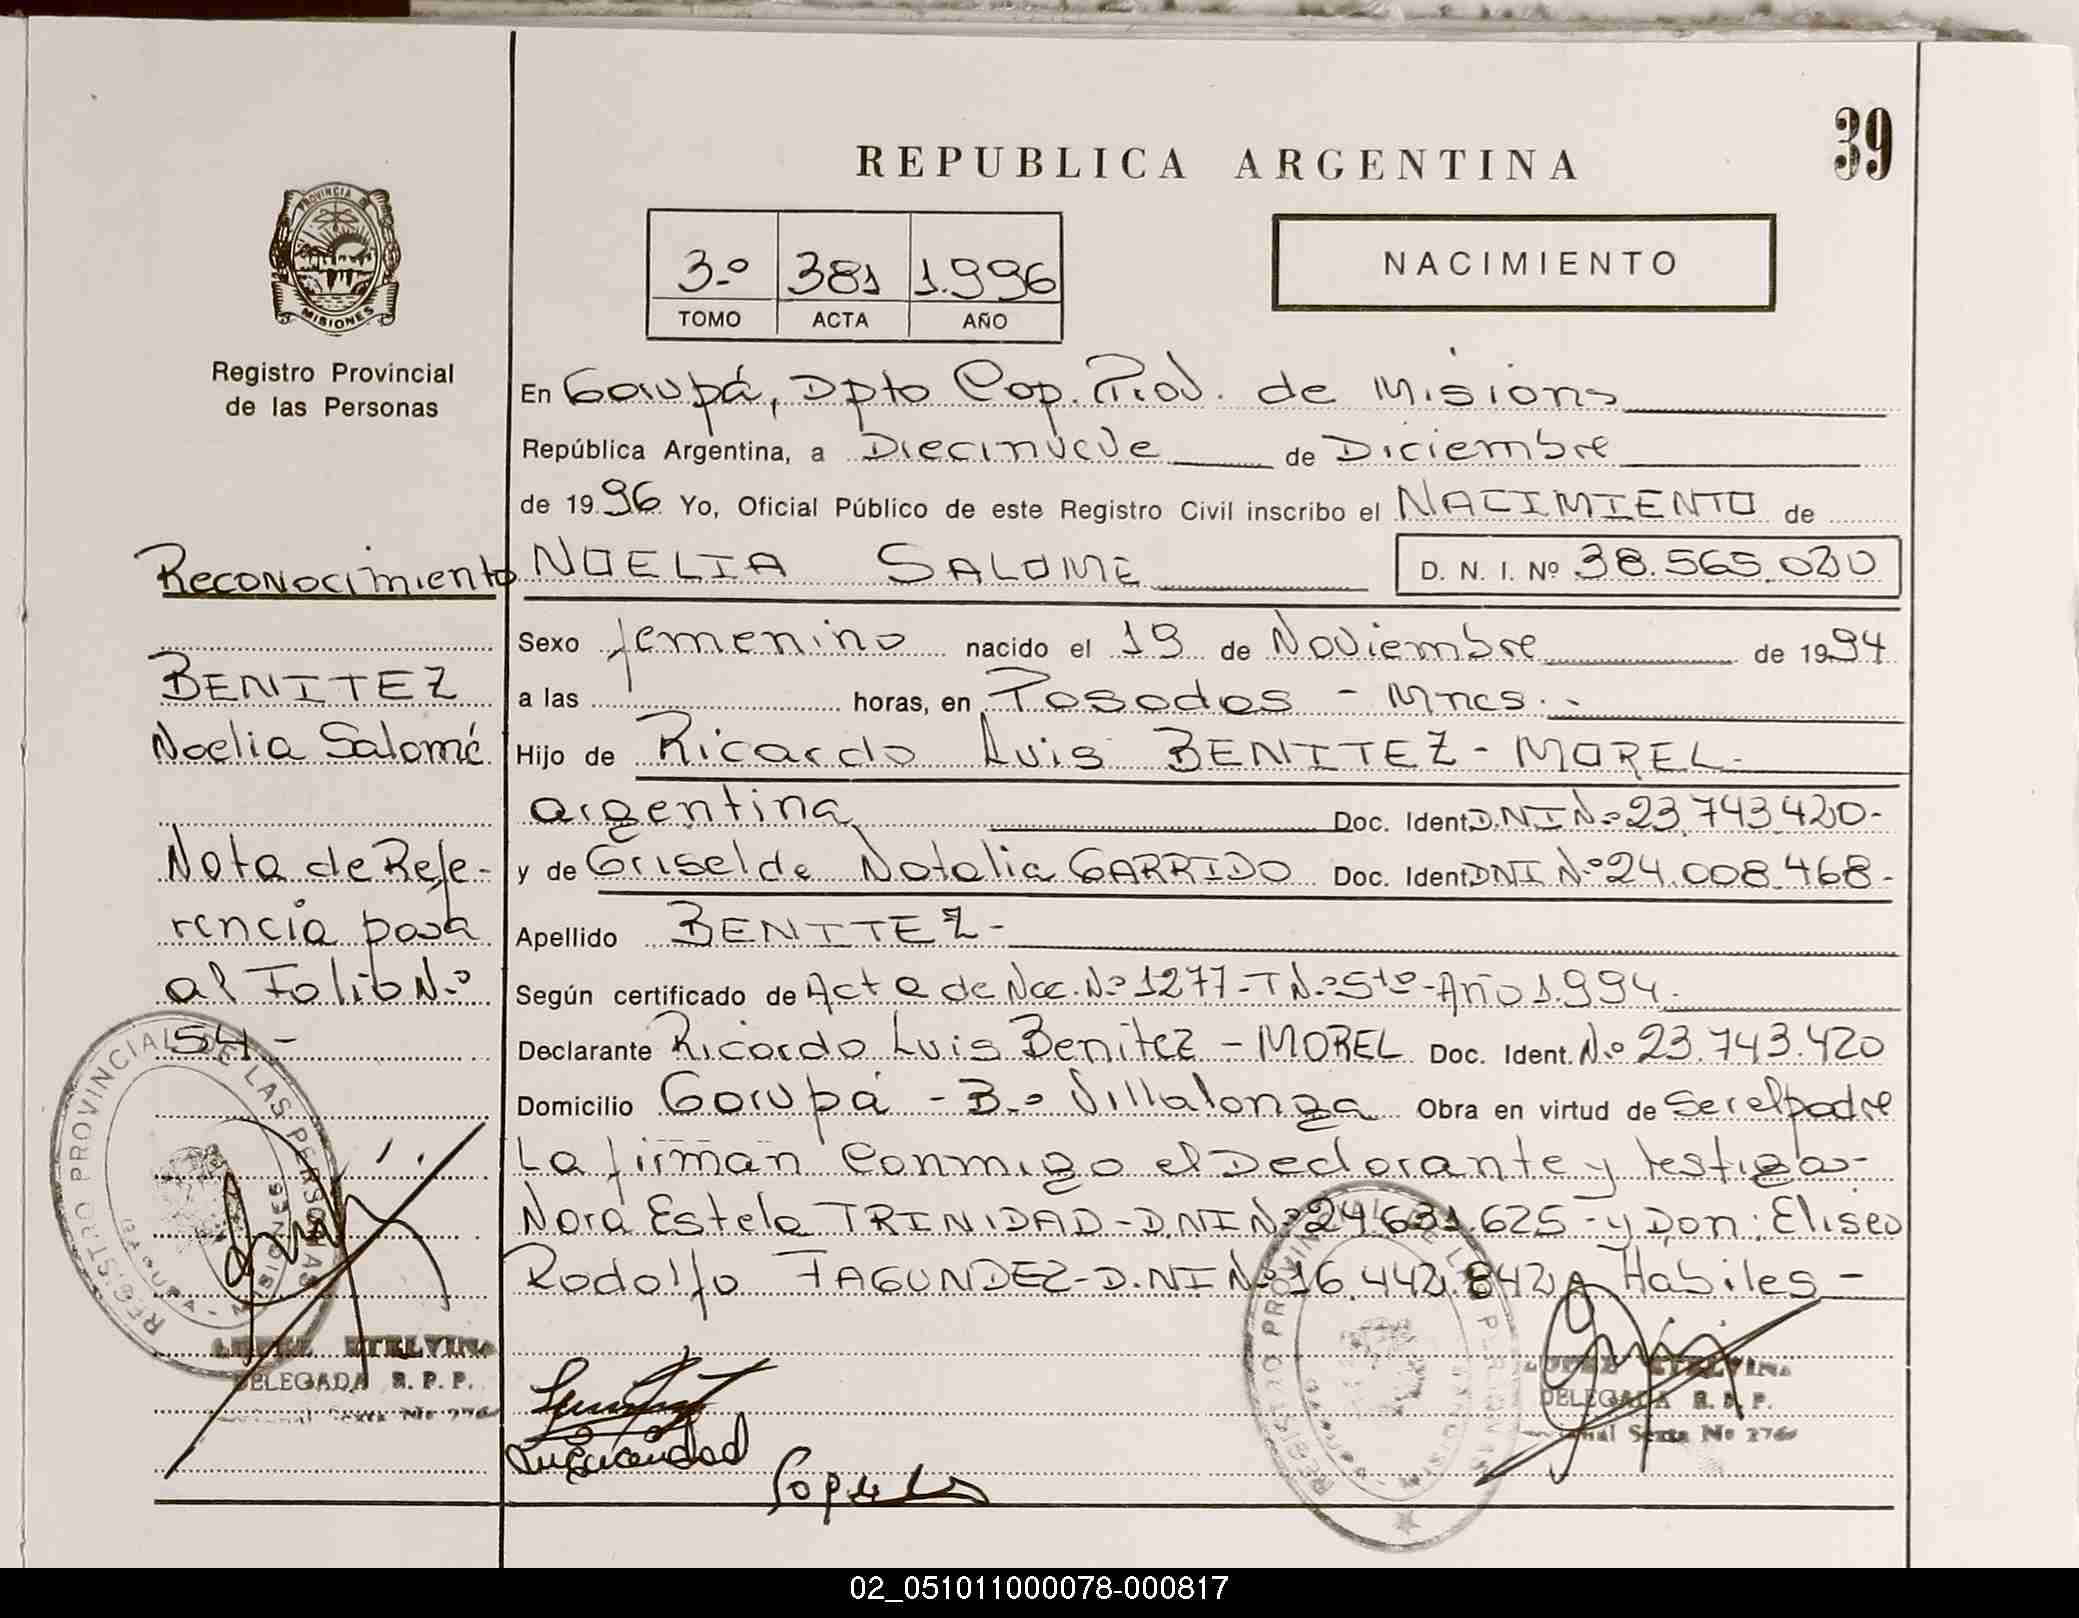 39
REPUBLICA ARGENTINA
PROVINCIA DE
MISIONES
3.º 381 1.996
TOMO ACTA AÑO
NACIMIENTO
Registro Provincial
de las Personas
En Garupá, Dpto Cap. Prov. de Misions
República Argentina, a Diecinueve de Diciembre
de 1996 Yo, Oficial Público de este Registro Civil inscribo el NACIMIENTO de
NOELIA SALOME D. N. I. Nº 38.565.020
Sexo femenino nacido el 19 de Noviembre de 1994
a las horas, en Posadas - Mnes.-
Hijo de Ricardo Luis BENITEZ - MOREL-
argentina Doc. Ident D.NI N.º 23.743.420-
y de Griselda Natalia GARRIDO Doc. Ident DNI N.º 24.008.468-
Apellido BENITEZ-
Según certificado de Acta de Nac. N.º 1277-T N.º 5to-Año 1.994.
Declarante Ricardo Luis Benitez - MOREL Doc. Ident. N.º 23.743.420
Domicilio Garupá - B.º Villalonga Obra en virtud de Ser el padre
La firman Conmigo el Declarante y testigos-
Nora Estela TRINIDAD-D.NI N.º 24.631.625 - y Don: Eliseo
Rodolfo FAGUNDEZ-D.NI N.º 16.442.842 Habiles -
Reconocimiento
BENITEZ
Noelia Salomé
Nota de Refe-
rencia pasa
al Folio N.º
54-
REGISTRO PROVINCIAL DE LAS PERSONAS
MISIONES
ETELVINA
DELEGADA R. P. P.
Sexta Nº 276
REGISTRO PROVINCIAL DE LAS PERSONAS
ETELVINA
DELEGADA R. P. P.
Sexta Nº 276
02_051011000078-000817